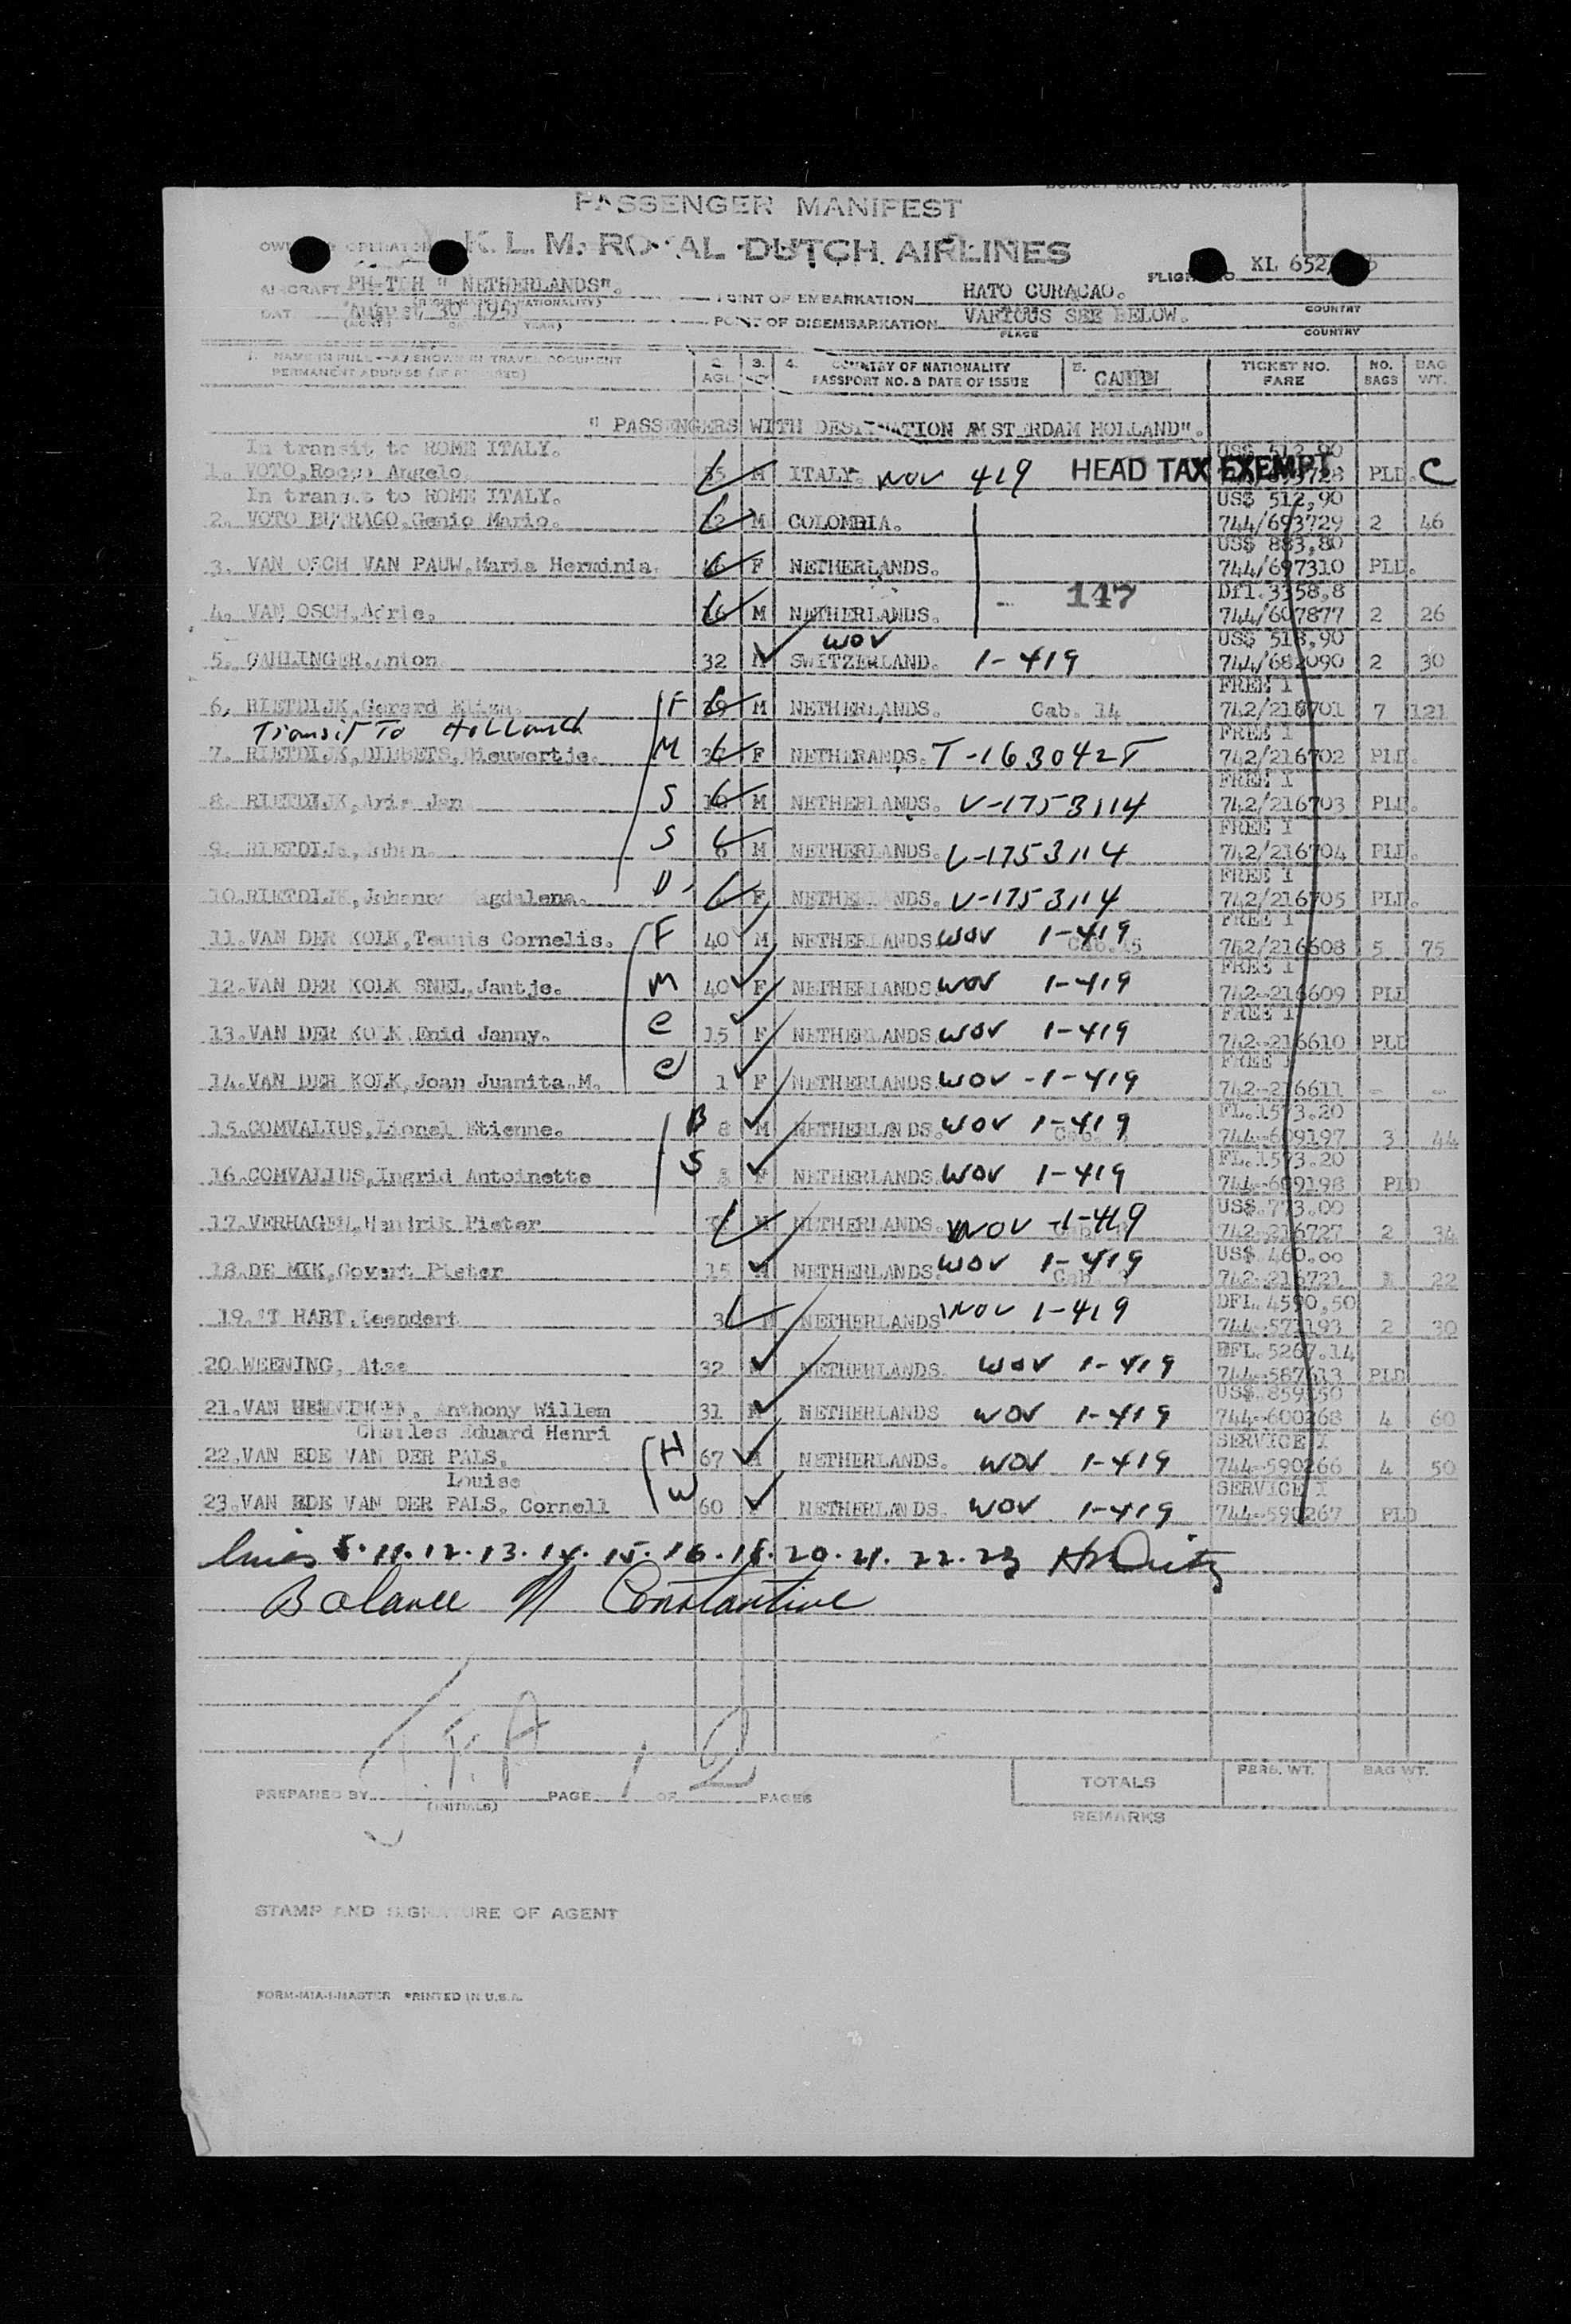 PASSENGER MANIFEST
K. L. M. ROYAL DUTCH AIRLINES
FLIGHT NO. KL 652
AIRCRAFT PH-TDH " NETHERLANDS".
POINT OF EMBARKATION HATO CURACAO.
DATE August 30 1951
COUNTRY
POINT OF DISEMBARKATION VARIOUS SEE BELOW.
PLACE COUNTRY
1. NAME IN FULL--AS SHOWN IN TRAVEL DOCUMENT 2. 3. 4. COUNTRY OF NATIONALITY 5. CABIN TICKET NO. NO. BAG
PERMANENT ADDRESS (IF REQUIRED) AGE PASSPORT NO. & DATE OF ISSUE FARE BAGS WT.
" PASSENGERS WITH DESTINATION AMSTERDAM HOLLAND".
In transit to ROME ITALY. US$ 512,90
1. VOTO, Rocco Angelo. M ITALY. WOV 419 HEAD TAX EXEMPT PLD. C
In transit to ROME ITALY. US$ 512,90
2. VOTO BUTRAGO, Genio Mario. M COLOMBIA. 744/693729 2 46
US$ 883,80
3. VAN OSCH VAN PAUW, Maria Herminia. F NETHERLANDS. 744/697310 PLD.
147 Dfl. 3358,8
4. VAN OSCH, Adrie. 16 M NETHERLANDS. 744/607877 2 26
WOV US$ 518,90
5. GAHLINGER, Anton 32 M SWITZERLAND. 1-419 744/682090 2 30
FREE I
6. RIETDIJK, Gerard Eliza. F M NETHERLANDS. Cab. 14 742/216701 7 121
Transit To Holland FREE I
7. RIETDIJK, DIBBETS, Nieuwertje. M F NETHERANDS. T-163042T 742/216702 PLD.
FREE I
8. RIETDIJK, Arie Jan S 10 M NETHERLANDS. V-1753114 742/216703 PLD.
FREE I
9. RIETDIJK, S M NETHERLANDS. V-1753114 742/216704 PLD.
FREE I
10. RIETDIJK, Johanna Magdalena. D F NETHERLANDS. V-1753114 742/216705 PLD.
FREE I
11. VAN DER KOLK, Teunis Cornelis. F 40 M NETHERLANDS WOV 1-419 742/216608 5 75
FREE I
12. VAN DER KOLK SNEL, Jantje. M 40 F NETHERLANDS WOV 1-419 742-216609 PLD
FREE I
13. VAN DER KOLK Enid Janny. C 15 F NETHERLANDS WOV 1-419 742-216610 PLD
FREE I
14. VAN DER KOLK, Joan Juanita M. C 1 F NETHERLANDS. WOV -1-419 742-216611 - -
FL. 1573.20
15. COMVALIUS, Lionel Etienne. B 8 M NETHERLANDS. WOV 1-419 744-609197 3 44
FL. 1573.20
16. COMVALIUS, Ingrid Antoinette S F NETHERLANDS WOV 1-419 744-609198 PLD
US$. 773.00
17. VERHAGEN, Hendrik Pieter M NETHERLANDS. WOV -1-419 742-216727 2 34
US$. 460.00
18. DE MIK, Govert Pieter 15 M NETHERLANDS. WOV 1-419 742-216721 1 22
DFL. 4590,50
19. 'T HART, Leendert M NETHERLANDS WOV 1-419 744-573193 2 30
DFL. 5267.14
20. WEENING, Atse 32 M NETHERLANDS. WOV 1-419 744-587613 PLD
US$. 859.50
21. VAN HEMNINGEN, Anthony Willem 31 M NETHERLANDS WOV 1-419 744-600268 4 60
Charles Eduard Henri SERVICE I
22. VAN EDE VAN DER PALS. H 67 M NETHERLANDS. WOV 1-419 744-590266 4 50
Louise SERVICE I
23. VAN EDE VAN DER PALS. Cornell W 60 F NETHERLANDS. WOV 1-419 744-590267 PLD
lines 5.11.12.13.14.15.16.18.20.21.22.23
Balance Constantine
PREPARED BY PAGE 1 OF 2 PAGES
(INITIALS)
TOTALS PERS. WT. BAG WT.
REMARKS
STAMP AND SIGNATURE OF AGENT
FORM-MIA-1-MASTER PRINTED IN U.S.A.